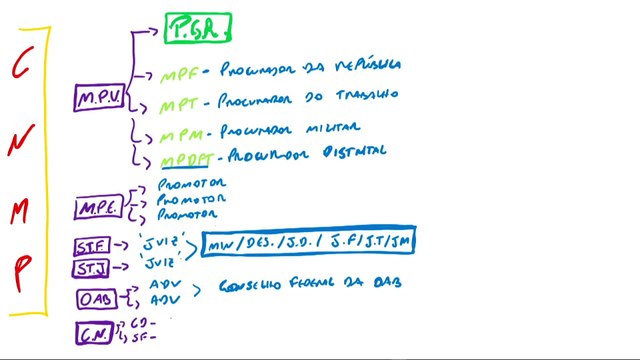 C
N
M
P
P.G.R.
M.P.U.
MPF - PROCURADOR DA REPÚBLICA
MPT - PROCURADOR DO TRABALHO
MPM - PROCURADOR MILITAR
MPDFT - PROCURADOR DISTRITAL
M.P.E.
PROMOTOR
PROMOTOR
PROMOTOR
STF → 'JUIZ'
STJ → 'JUIZ'
MIN / DES. / J.D. / J.F / J.T / JM
OAB
ADV
ADV
CONSELHO FEDERAL DA OAB
C.N.
CD -
SF -